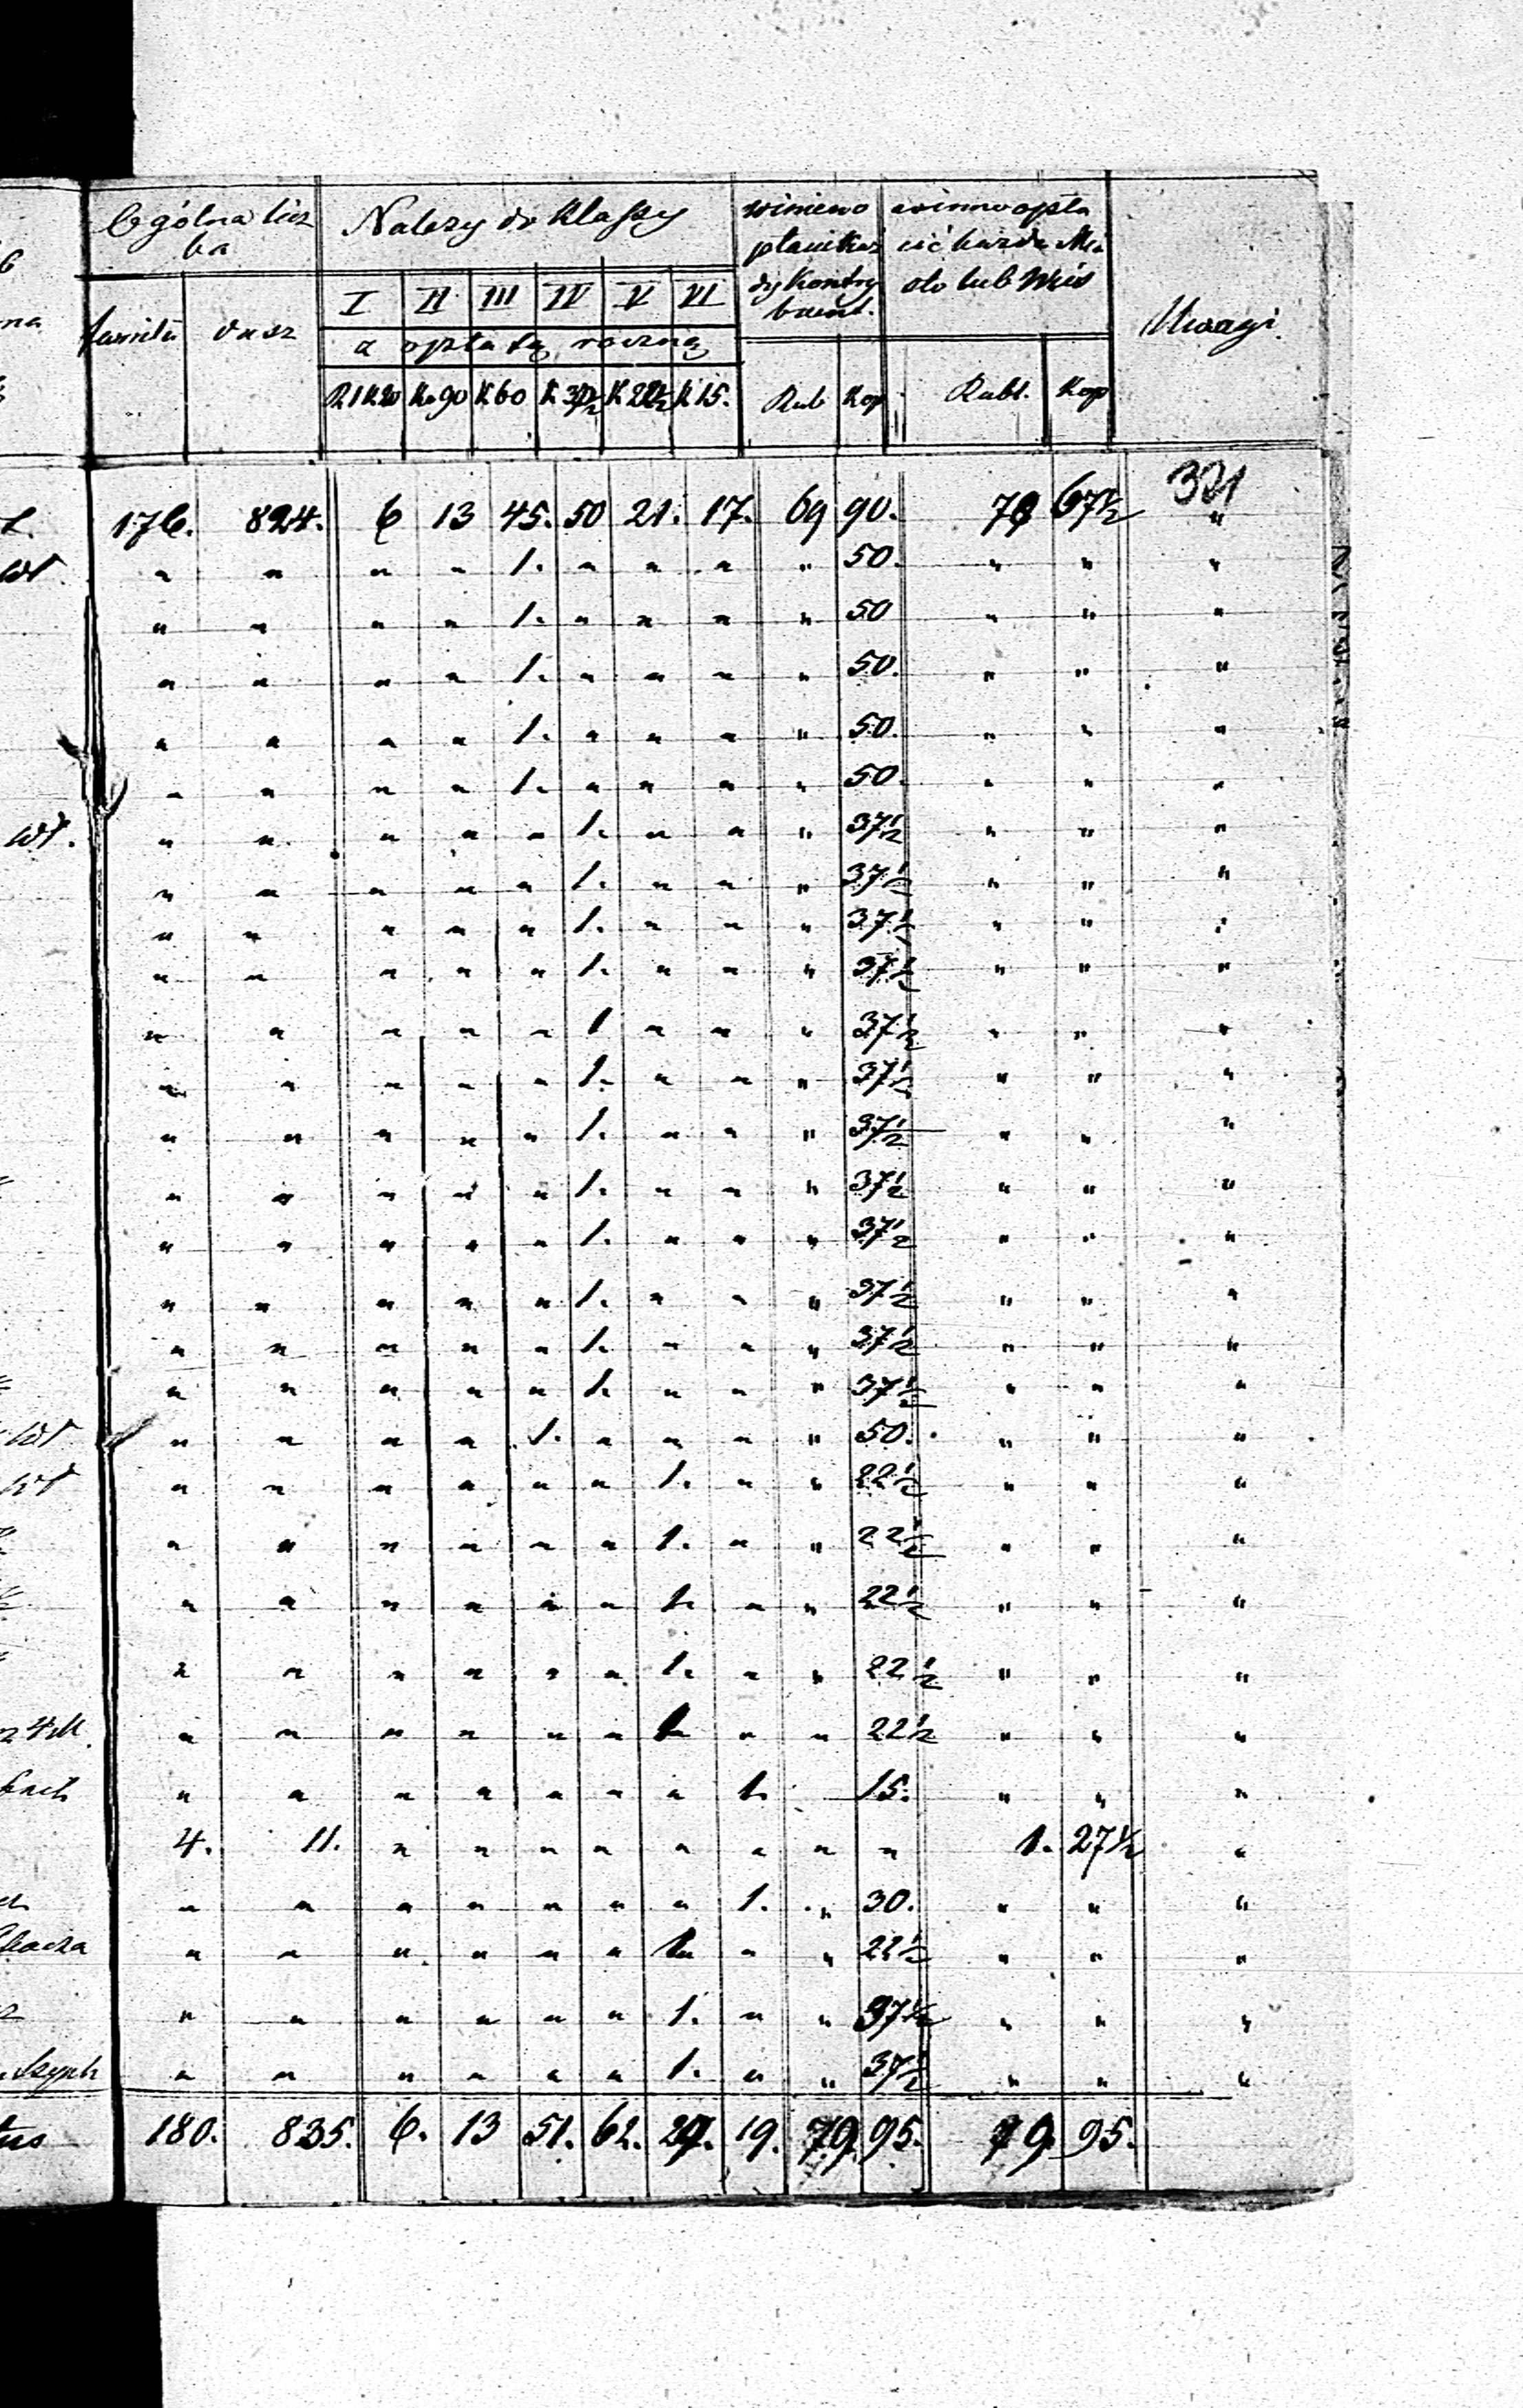 Ogólna licz
ba
Należy do Klassy
winien
płacić każ
dy Kontry
buent.
winno opła
cić każde Mia
sto lub Wieś
Uwagi.
familii dusz
I II III IV V VI
z opłatą roczną
R1 K20 K. 90 K 60 K 37½ K 22½ K 15.
Rub Kop Rubl. Kop
321
176. 824. 6 13 45. 50 21. 17. 69 90. 78 67½ "
wł. " " " " 1. " " " " 50. " " "
" " " " 1. " " " " 50 " " "
" " " " 1. " " " " 50. " " "
" " " " 1. " " " " 50. " " "
" " " " 1. " " " " 50. " " "
wł. " " " " " 1. " " " 37½ " " "
" " " " " 1. " " " 37½ " " "
" " " " " 1. " " " 37½ " " "
" " " " " 1. " " " 37½ " " "
" " " " " 1 " " " 37½ " " "
" " " " " 1. " " " 37½ " " "
" " " " " 1. " " " 37½ " " "
" " " " " 1. " " " 37½ " " "
" " " " " 1. " " " 37½ " " "
" " " " " 1. " " " 37½ " " "
" " " " " 1. " " " 37½ " " "
" " " " " 1. " " " 37½ " " "
wł " " " " 1. " " " " 50. " " "
wł " " " " " " 1. " " 22½ " " "
" " " " " " 1. " " 22½ " " "
" " " " " " 1. " " 22½ " " "
" " " " " " 1. " " 22½ " " "
" " " " " " 1 " " 22½ " " "
" " " " " " " 1. 15. " " "
4. 11. " " " " " " " " 1. 27½ "
" " " " " " " 1. " 30. " " "
" " " " " " 1 " " 22½ " " "
" " " " " " 1. " " 37½ " " "
" " " " " " 1. " " 37½ " " "
180. 835. 6. 13 51. 62. 29. 19. 79. 95. 79 95.